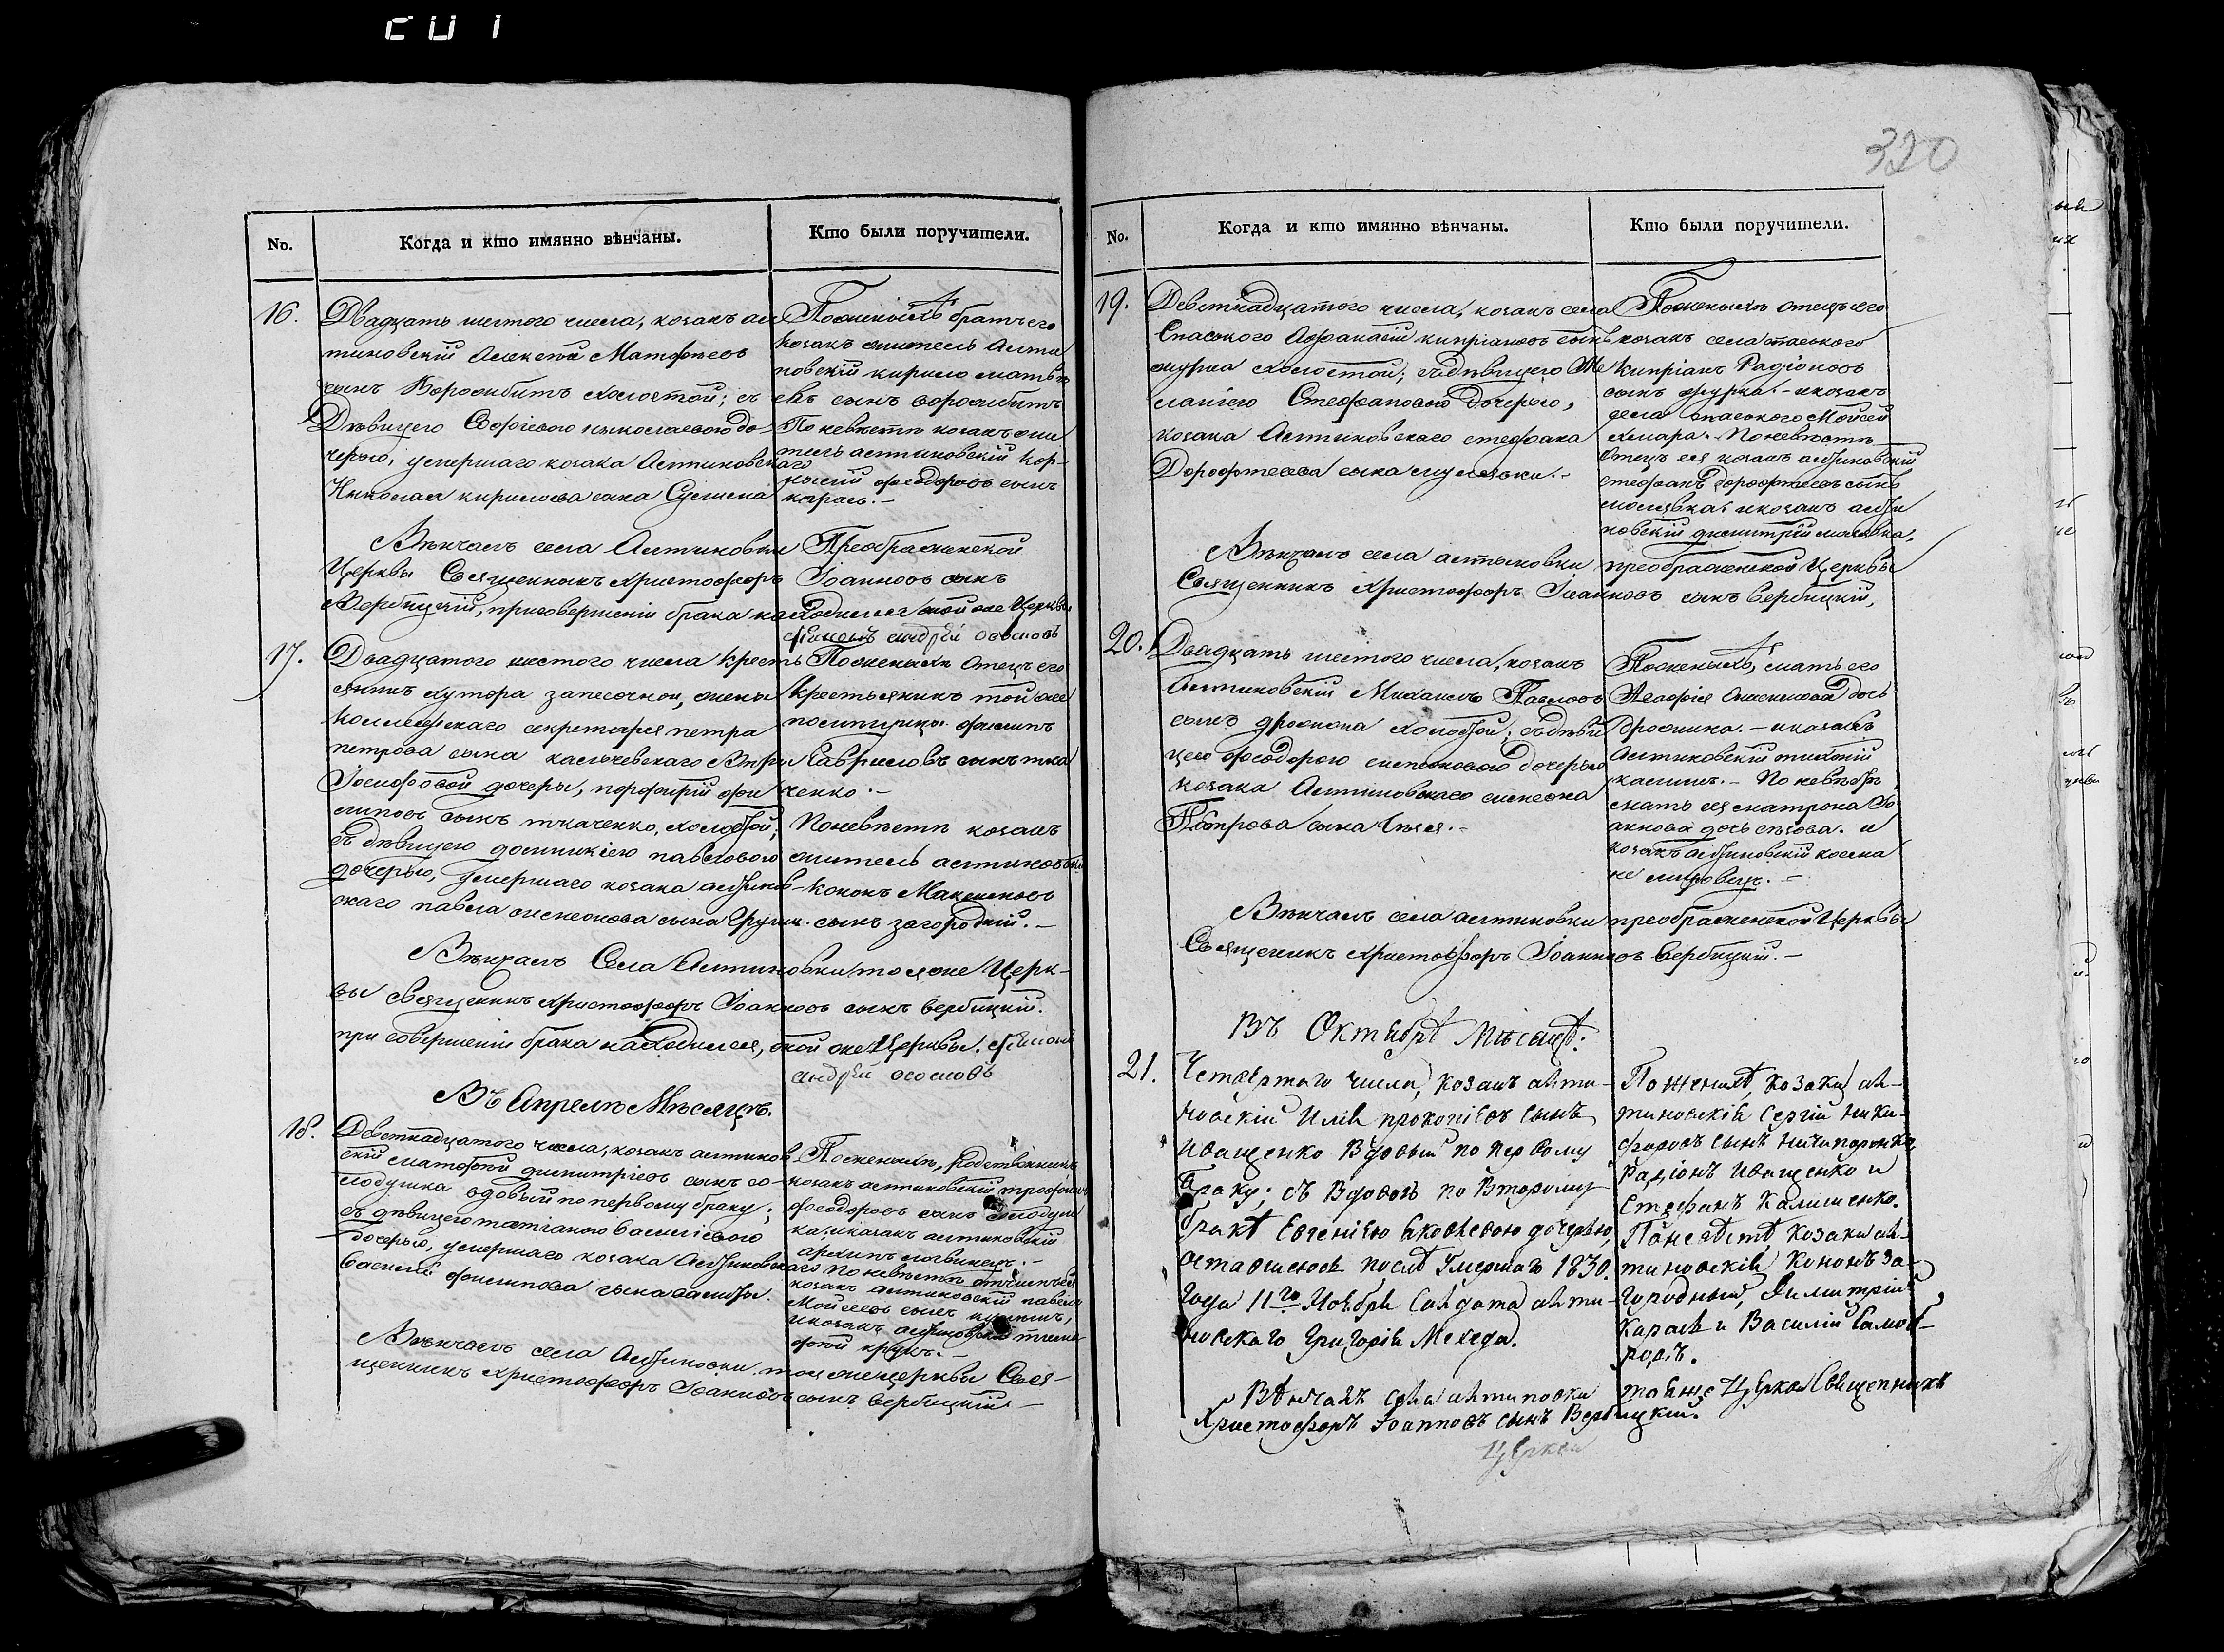 320
No.
Когда и кто имянно вѣнчаны.
Кто были поручители.
16.
Двадцать шестого числа, козакъ ал
тиновскій Алексѣй Матфѣевъ
сынъ Ворожбитъ холостой; съ
Дѣвицею Софіевою николаевою до-
черью, умершаго козака Алтиновскаго
Николая кирилова сына
По женихѣ братъ его
козакъ житель Алти
новскій кирило матѣ
евъ сынъ ворожбитъ
По невѣстѣ козакъ жи
тель алтиновскій кор-
нилій феодоровъ сынъ
карась.-
Вѣнчалъ села Алтиновки Преображенской
Церквы Священникъ христофоръ Іоанновъ сынъ
Вербицкій, при совершеніи брака находился той же Церквы
андрей
17.
Двадцатого шестого числа кресть
янинъ хутора запесочной, жены
коллежскаго секретаря петра
петрова сына Вѣры
Іосифовой дочеры, порфирій фи
липовъ сынъ ткаченко, холостой;
съ дѣвицею домникіею павловою
дочерью, умершаго козака алтинов-
скаго павла симеонова сына
По женихѣ Отецъ его
крестьянинъ той же
помещицы филипъ
Гавриловъ сынъ тка
ченко.-
По невѣстѣ козакъ
житель алтиновскій
кононъ Максимовъ
сынъ загородній.-
Вѣнчалъ Села Алтиновки тоя же Церк-
вы священникъ христофоръ Іоанновъ сынъ вербицкій.
при совершеніи брака находился, той же Церквы
андрей
Въ Апрелѣ Мѣсяцѣ.
18.
Деветнадцатого числа, козакъ алтинов
скій матфей димитріевъ сынъ со-
лодушка вдовый по первому браку;
съ дѣвицею татіаною василіевою
дочерью, умершаго козака Алтиновскаго
Василія филипова сына
По женихѣ, родственникъ
козакъ алтиновскій трофимъ
феодоровъ сынъ солодуш
ка, и козакъ алтиновскій
архипъ
По невѣстѣ отчимъ ея
козакъ алтиновскій павелъ
Моисеевъ сынъ
и козакъ алтиновскій тимо
фей
Вѣнчалъ села Алтиновки тоя же церквы Свя-
щенникъ христофоръ Іоанновъ сынъ вербицкій
No.
Когда и кто имянно вѣнчаны.
Кто были поручители.
19.
Деветнадцатого числа, козакъ села
Спаского Афанасій кипріановъ сынъ
журма холостой; съ дѣвицею Ме
ланіею Стефановою дочерью,
козака Алтиновскаго стефана
Дорофѣева сына
По женихѣ отецъ его
козакъ села спаского
кипріанъ Радіоновъ
сынъ журма.- и козакъ
села спаского Мойсей
хмара. По невѣстѣ
Отецъ ея козакъ алтиновскій
стефанъ дорофѣевъ сынъ
и козакъ алти
новскій димитрій
Вѣнчалъ села алтыновки преображенской Церквы
Священникъ Христофоръ Іоанновъ сынъ вербицкій,
20.
Двадцать шестого числа, козакъ
Алтиновскій Михаилъ Павловъ
сынъ холостой; съ дѣви
цею феодорою симеоновою дочерью
козака Алтиновскаго симеона
Петрова сына
По женихѣ, мать его
Агафія дочь
и козакъ
Алтиновскій
По невѣстѣ
мать ея матрона Іо
аннова дочь и
козакъ алтиновскій косма
Вѣнчалъ села алтиновки преображенской Церквы
Священикъ христофоръ Іоанновъ вербицкій.-
Въ Октябрѣ Мѣсяцѣ:
21.
Четвертаго числа, козакъ алти-
новскій Илія прокопіевъ сынъ
иващенко Вдовый по первому
браку; съ Вдовою по Второму
бракѣ Евгеніею Яковлевою дочерью,
оставшеюся послѣ Умершаго 1830.
Года 11го Ноября Салдата алти-
новскаго Григорія Мехеда.
По женихѣ, козаки ал-
тиновскія Сергій Ники-
форовъ сынъ Ничипоренко,
Радіонъ Иващенко и
Стефанъ Калишенко.
По невѣстѣ, козаки ал-
тиновскія кононъ за-
городный, Димитрій
Карась и Василій Самоб-
родъ.
Вѣнчалъ села алтиновки тоя же Церкви Священникъ
Христофоръ Іоанновъ сынъ Вербицкій.
Церкви